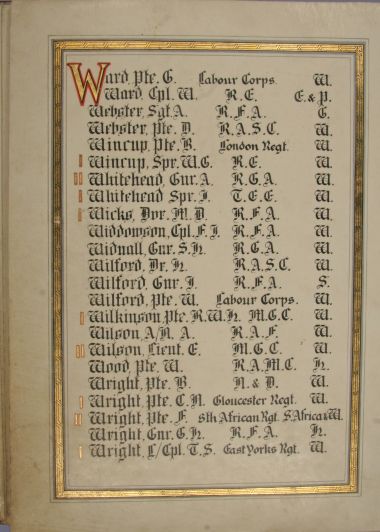 Ward, Pte. G. Labour Corps. W.
Ward Cpl. W. R.E. E. & P.
Webster, Sgt. A. R.F.A. G.
Webster, Pte. D. R.A.S.C. W.
Wincup, Pte. B. London Regt. W.
I Wincup, Spr. W.G. R.E. W.
II Whitehead, Gnr. A. R.G.A. W.
I Whitehead Spr. J. T.E.E. W.
I Wicks, Dvr. M.D. R.F.A. W.
Widdowson, Cpl. F.J. R.F.A. W.
Widnall, Gnr. S.H. R.G.A. W.
Wilford, Dr. H. R.A.S.C. W.
Wilford, Gnr. J. R.F.A. S.
Wilford, Pte. W. Labour Corps. W.
I Wilkinson, Pte. R.W.H. M.G.C. W.
Wilson, A/M. A. R.A.F. W.
II Wilson, Lieut. E. M.G.C. W.
Wood, Pte. W. R.A.M.C. H.
Wright, Pte. B. N. & D. W.
I Wright, Pte. C.H. Gloucester Regt. W.
II Wright, Pte. F. Sth African Rgt. S. Africa W.
Wright, Gnr. G.H. R.F.A. H.
I Wright, L/Cpl. T.S. East Yorks Rgt. W.